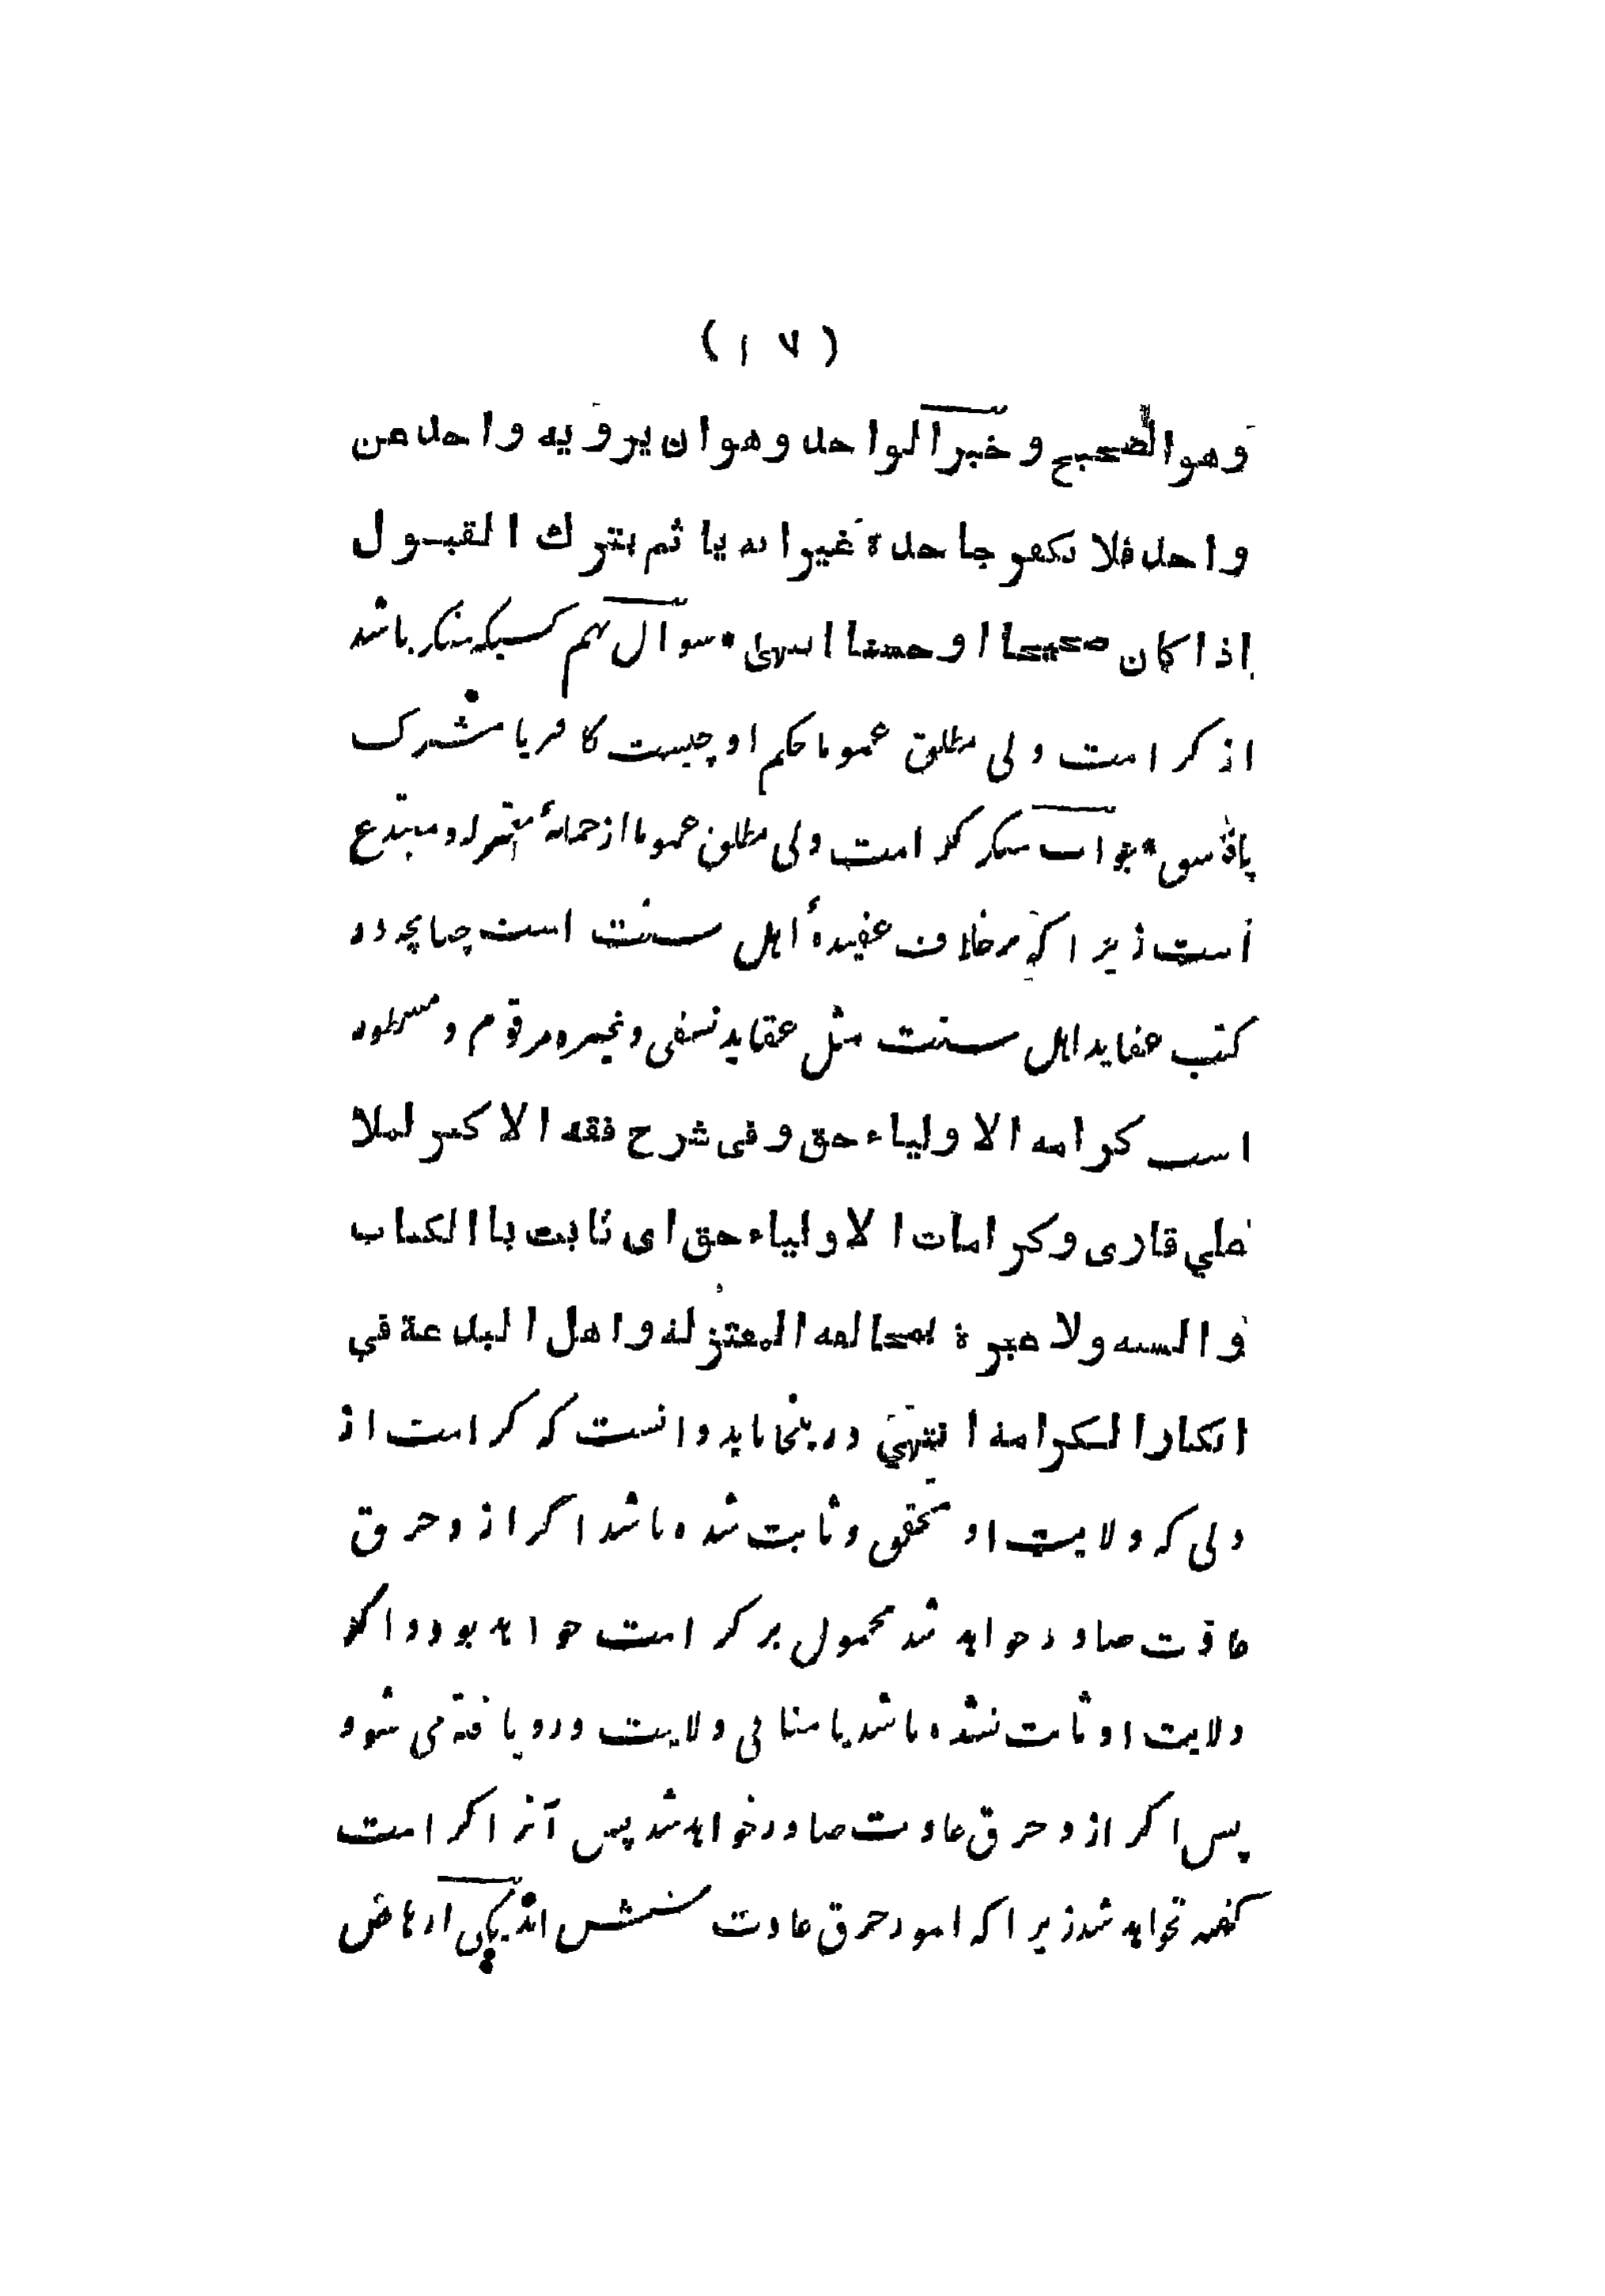 (۱۷)
وهوالصحيح وخبرالواحد وهوان يرويه واحد عن
واحد فلا تكفر جاحده غيرانه ياثم بترك القبول
اذا كان صحيحا اوحسنا انتهى * سوال نهم كسيكه منكر باشد
از كرامت ولى مطلق عموما حكم او چيست كافر يا مشرك
يا فاسق * جواب منكر كرامت ولى مطلق عموما از جملهٔ معتزله و مبتدع
است زيرا كه برخلاف عقيدهٔ اهل سنت است چنانچه در
كتب عقايد اهل سنت مثل عقايد نسفى وغيره مرقوم و مسطور
است كرامة الاولياء حق وفى شرح فقه الاكبر لملا
علي قارى وكرامات الاولياء حق اى ثابت باالكتاب
والسنه ولا عبرة بمخالفة المعتزلة واهل البدعة في
انكار الكرامة انتهى درينجا بايد دانست كه كرامت از
ولى كه ولايت او متحقق و ثابت شده باشد اگر از و خرق
عادت صادر خواهد شد محمول بر كرامت خواهد بود و اگر
ولايت او ثابت نشده باشد يا منافى ولايت درو يافته مى شود
پس اگر از و خرق عادت صادر خواهد شد پس آنرا كرامت
گفته نخواهد شد زيرا كه امور خرق عادت شش اند يكى ارهاص